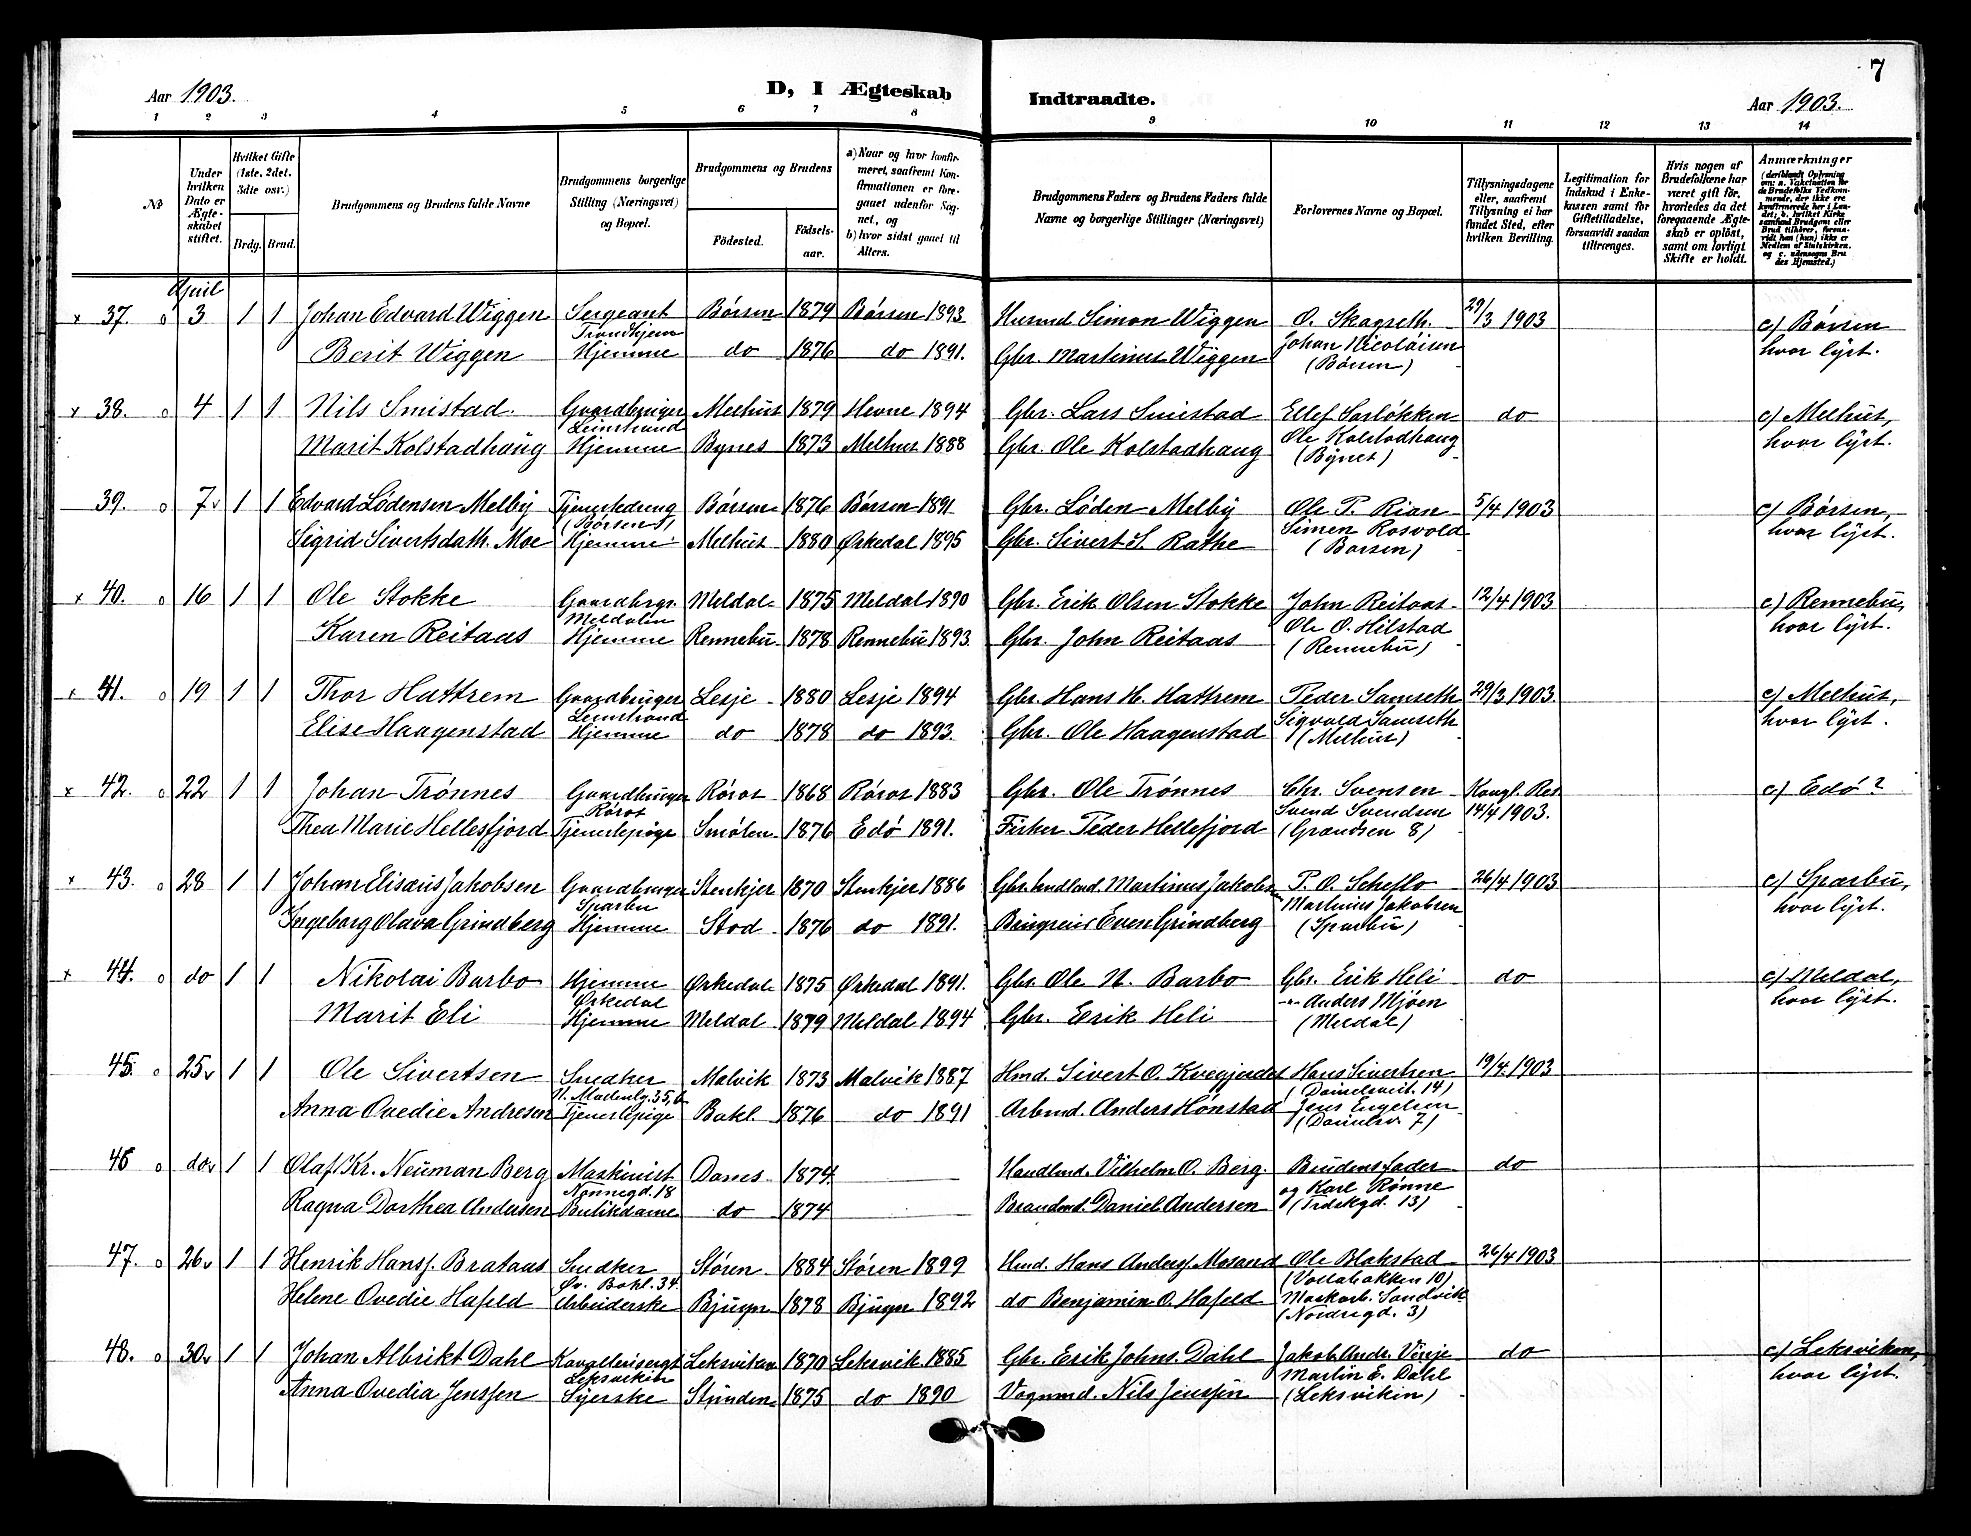 7
Aar 1903.
D, I Ægteskab
Indtraadte.
Aar 1903.
1 2 3 4 5 6 7 8 9 10 11 12 13 14
No
Under hvilken Dato er Ægteskabet stiftet.
Hvilket Gifte (1ste, 2det, 3die osv.)
Brdg. Brud.
Brudgommens og Brudens fulde Navne
Brudgommens borgerlige Stilling (Næringsvei) og Bopæl.
Brudgommens og Brudens
Fødested.
Fødselsaar.
a) Naar og hvor konfirmeret, saafremt Konfirmationen er foregaaet udenfor Sognet, og
b) hvor sidst gaaet til Alters.
Brudgommens Faders og Brudens Faders fulde Navne og borgerlige Stillinger (Næringsvei)
Forlovernes Navne og Bopæl.
Tillysningsdagene eller, saafremt Tillysning ei har fundet Sted, efter hvilken Bevilling.
Legitimation for Indskud i Enkekassen samt for Giftetilladelse, forsaavidt saadan tiltrænges.
Hvis nogen af Brudefolkene har været gift før, hvorledes da det foregaaende Ægteskab er opløst, samt om lovligt Skifte er holdt.
Anmærkninger
(deriblandt Oplysning om: a. Vaktsination for de Brudefolks Vedkommende, der ikke ere konfirmerede her i Landet; b. hvilket Kirkesamfund Brudgom eller Brud tilhører, forsaavidt han (hun) ikke er Medlem af Statskirken, og c. udensogns Brudes Hjemsted.)
April
x 37. o 3 1 1 Johan Edvard Wiggen Sergeant Børsen 1879 Børsen 1893 Husmd Simon Wiggen O. Skagseth. 29/3 1903 c) Børsen
Trondhjem
Berit Wiggen Hjemme do 1876 do 1891. Gbr. Martinus Wiggen Johan Nicolaisen hvor lyst.
(Børsen)
x 38. o 4 1 1 Nils Smistad. Gaardbruger Melhus 1879 Hevne 1894 Gbr. Lars Smistad Ellef Sarløkken do c) Melhus,
Leinstrand
Marit Kolstadhaug Hjemme Bynes 1873 Melhus 1888 Gbr. Ole Kolstadhaug Ole Kolstadhaug hvor lyst.
(Byneset)
39. o 7 1 1 Edvard Lødensen Melby Tjenestedreng Børsen 1876 Børsen 1891 Gbr. Løden Melby Ole P. Rian 5/4 1903 c) Børsen,
(Børsen)
Sigrid Sivertsdatt. Moe Hjemme Melhus 1880 Ørkedal 1895 Gbr. Sivert S. Rathe Simen Rosvold hvor lyst.
(Børsen)
x 40. o 16 1 1 Ole Stokke Gaardbrgr. Meldal 1875 Meldal 1890 Gbr. Erik Olsen Stokke John Reitaas 12/4 1903 c) Rennebu,
Meldalen
Karen Reitaas Hjemme Rennebu 1878 Rennebu 1893. Gbr. John Reitaas Ole O. Hilstad hvor lyst.
(Rennebu)
x 41. o 19 1 1 Thor Hattrem Gaardbruger Lesje 1880 Lesje 1894 Gbr. Hans H. Hattrem Peder Samseth 29/3 1903. c) Melhus,
Leinstrand
Elise Haagenstad Hjemme do 1878 do 1893. Gbr. Ole Haagenstad Sigvald Samseth hvor lyst.
(Melhus)
x 42. o 22 1 1 Johan Trønnes Gaardbruger Røros 1868 Røros 1883 Gbr. Ole Trønnes Chr. Svensen Kongl. Res c) Edø?
Røros
Thea Marie Hellesfjord Tjenestepige Smølen 1876 Edø 1891. Fisker Peder Hellefjord Svend Svendsen 14/4 1903.
(Grandsen 8)
x 43. o 28 1 1 Johan Elisæus Jakobsen Gaardbruger Stenkjer 1870 Stenkjer 1886 Martinus Jakobsen P. O. Scheflo 26/4 1903 c) Sparbu,
Sparbu
Ingeborg Olava Grindberg Hjemme Stod 1876 do 1891. Even Grindberg Martinus Jakobsen hvor lyst.
(Sparbu)
x 44. o do 1 1 Nikolai Barbo Hjemme Ørkedal 1875 Ørkedal 1891. Gbr Ole N. Barbo Gbr. Erik Heli do c) Meldal,
Ørkedal
Marit Eli Hjemme Meldal 1879 Meldal 1894 Gbr. Erik Heli -"- Anders Mjøen hvor lyst.
(Meldal)
45. o 25 1 1 Ole Sivertsen Snedker Malvik 1873 Malvik 1887 Hmd. Sivert O. Kvegjerdet Hans Sivertsen 19/4 1903
(Danielsveit. 14)
Anna Ovedie Andresen Tjenestepige Bakl. 1876 do 1891 Arbmd. Anders Hønstad Jens Engelsen
(Danielsv. 7)
46 o do 1 1 Olaf Kr. Neuman Berg Maskinist Doms 1874. Handlmd. Vilhelm O. Berg. Brudens Fader do
Nonnegd. 18
Ragna Dorthea Andersen Butikdame do 1874 Brandmd. Daniel Andersen og Karl Rønne
(Trdskgd. 13)
47. o 26 1 1 Henrik Hanss. Brataas Snedker Støren 1884 Støren 1899 Hmd. Hans Anders. Ole Blakstad 26/4 1903
Øv. Bakl. 34 (Vollabakken 10)
Helene Ovedie Hafeld Arbeiderske Bjugn 1878 Bjugn 1892 do Benjamin O. Hafeld Maskarb. Sandvik
(Nordregd. 3)
48. o 30 1 1 Johan Albrikt Dahl Kavallerisergt Leksviken 1870 Leksvik 1885 Gbr. Erik Johns. Dahl Jakob Andr. Vinje do c) Leksviken,
Leksviken
Anna Ovedia Jenssen Syerske Strinden 1875 do 1890 Vognmd. Nils Jenssen Martin E. Dahl hvor lyst.
(Leksviken)